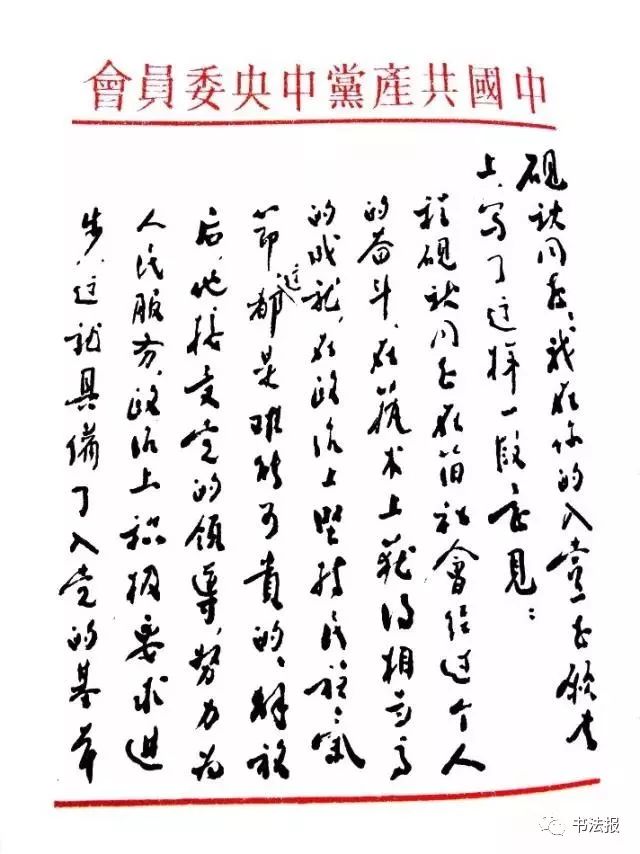 中國共產黨中央委員會
硯秋同志:我在你的入党志愿书
上,写了这样一段意見:
程硯秋同志在旧社會经过个人
的奋斗,在艺术上获得相当高
的成就,在政治上堅持民族气
節,这都是难能可貴的。解放
后,他接受党的領導,努力为
人民服务,政治上积极要求进
步,这就具備了入党的基本
书法报